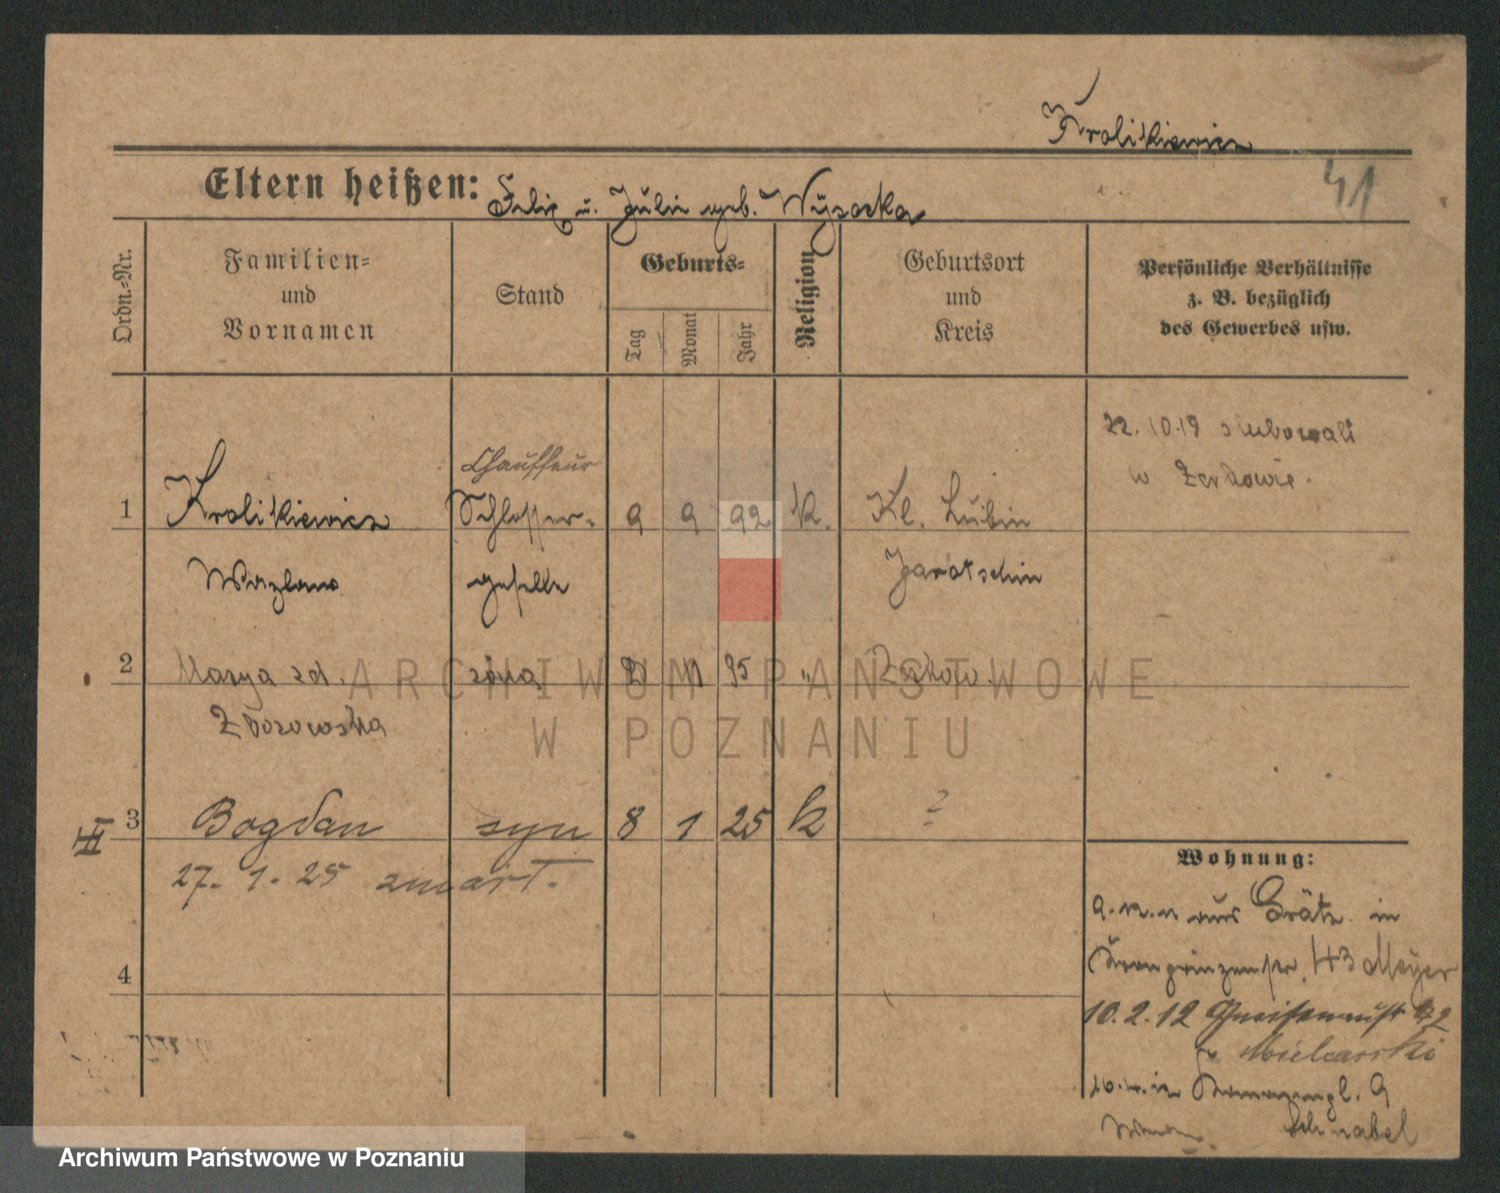 Krolikiewicz
Eltern heißen: Felix u. Julie geb. Wysocka
41
Ordn.-Nr.
Familien-
und
Vornamen
Stand
Geburts-
Tag
Monat
Jahr
Religion
Geburtsort
und
Kreis
Persönliche Verhältnisse
z. B. bezüglich
des Gewerbes usw.
22.10.19 slubowali
w Zerkowie.
Chauffeur
1 Krolikiewicz Schlosser- 9 9 92 K. Kl. Lubin
Wazlaw geselle Jarotschin
2 Marya zd. żona 11 95 " Zerkow
Zborowska
3 Bogdan syn 8 1 25 k ?
III
27. 1. 25 zmart.
4
Wohnung:
aus Grätz in
Kronprinzenstr. 43 Meyer
10.2.12 Gneisenaustr
Mielcarski
9
Schnabel
ARCHIWUM PAŃSTWOWE
W POZNANIU
Archiwum Państwowe w Poznaniu